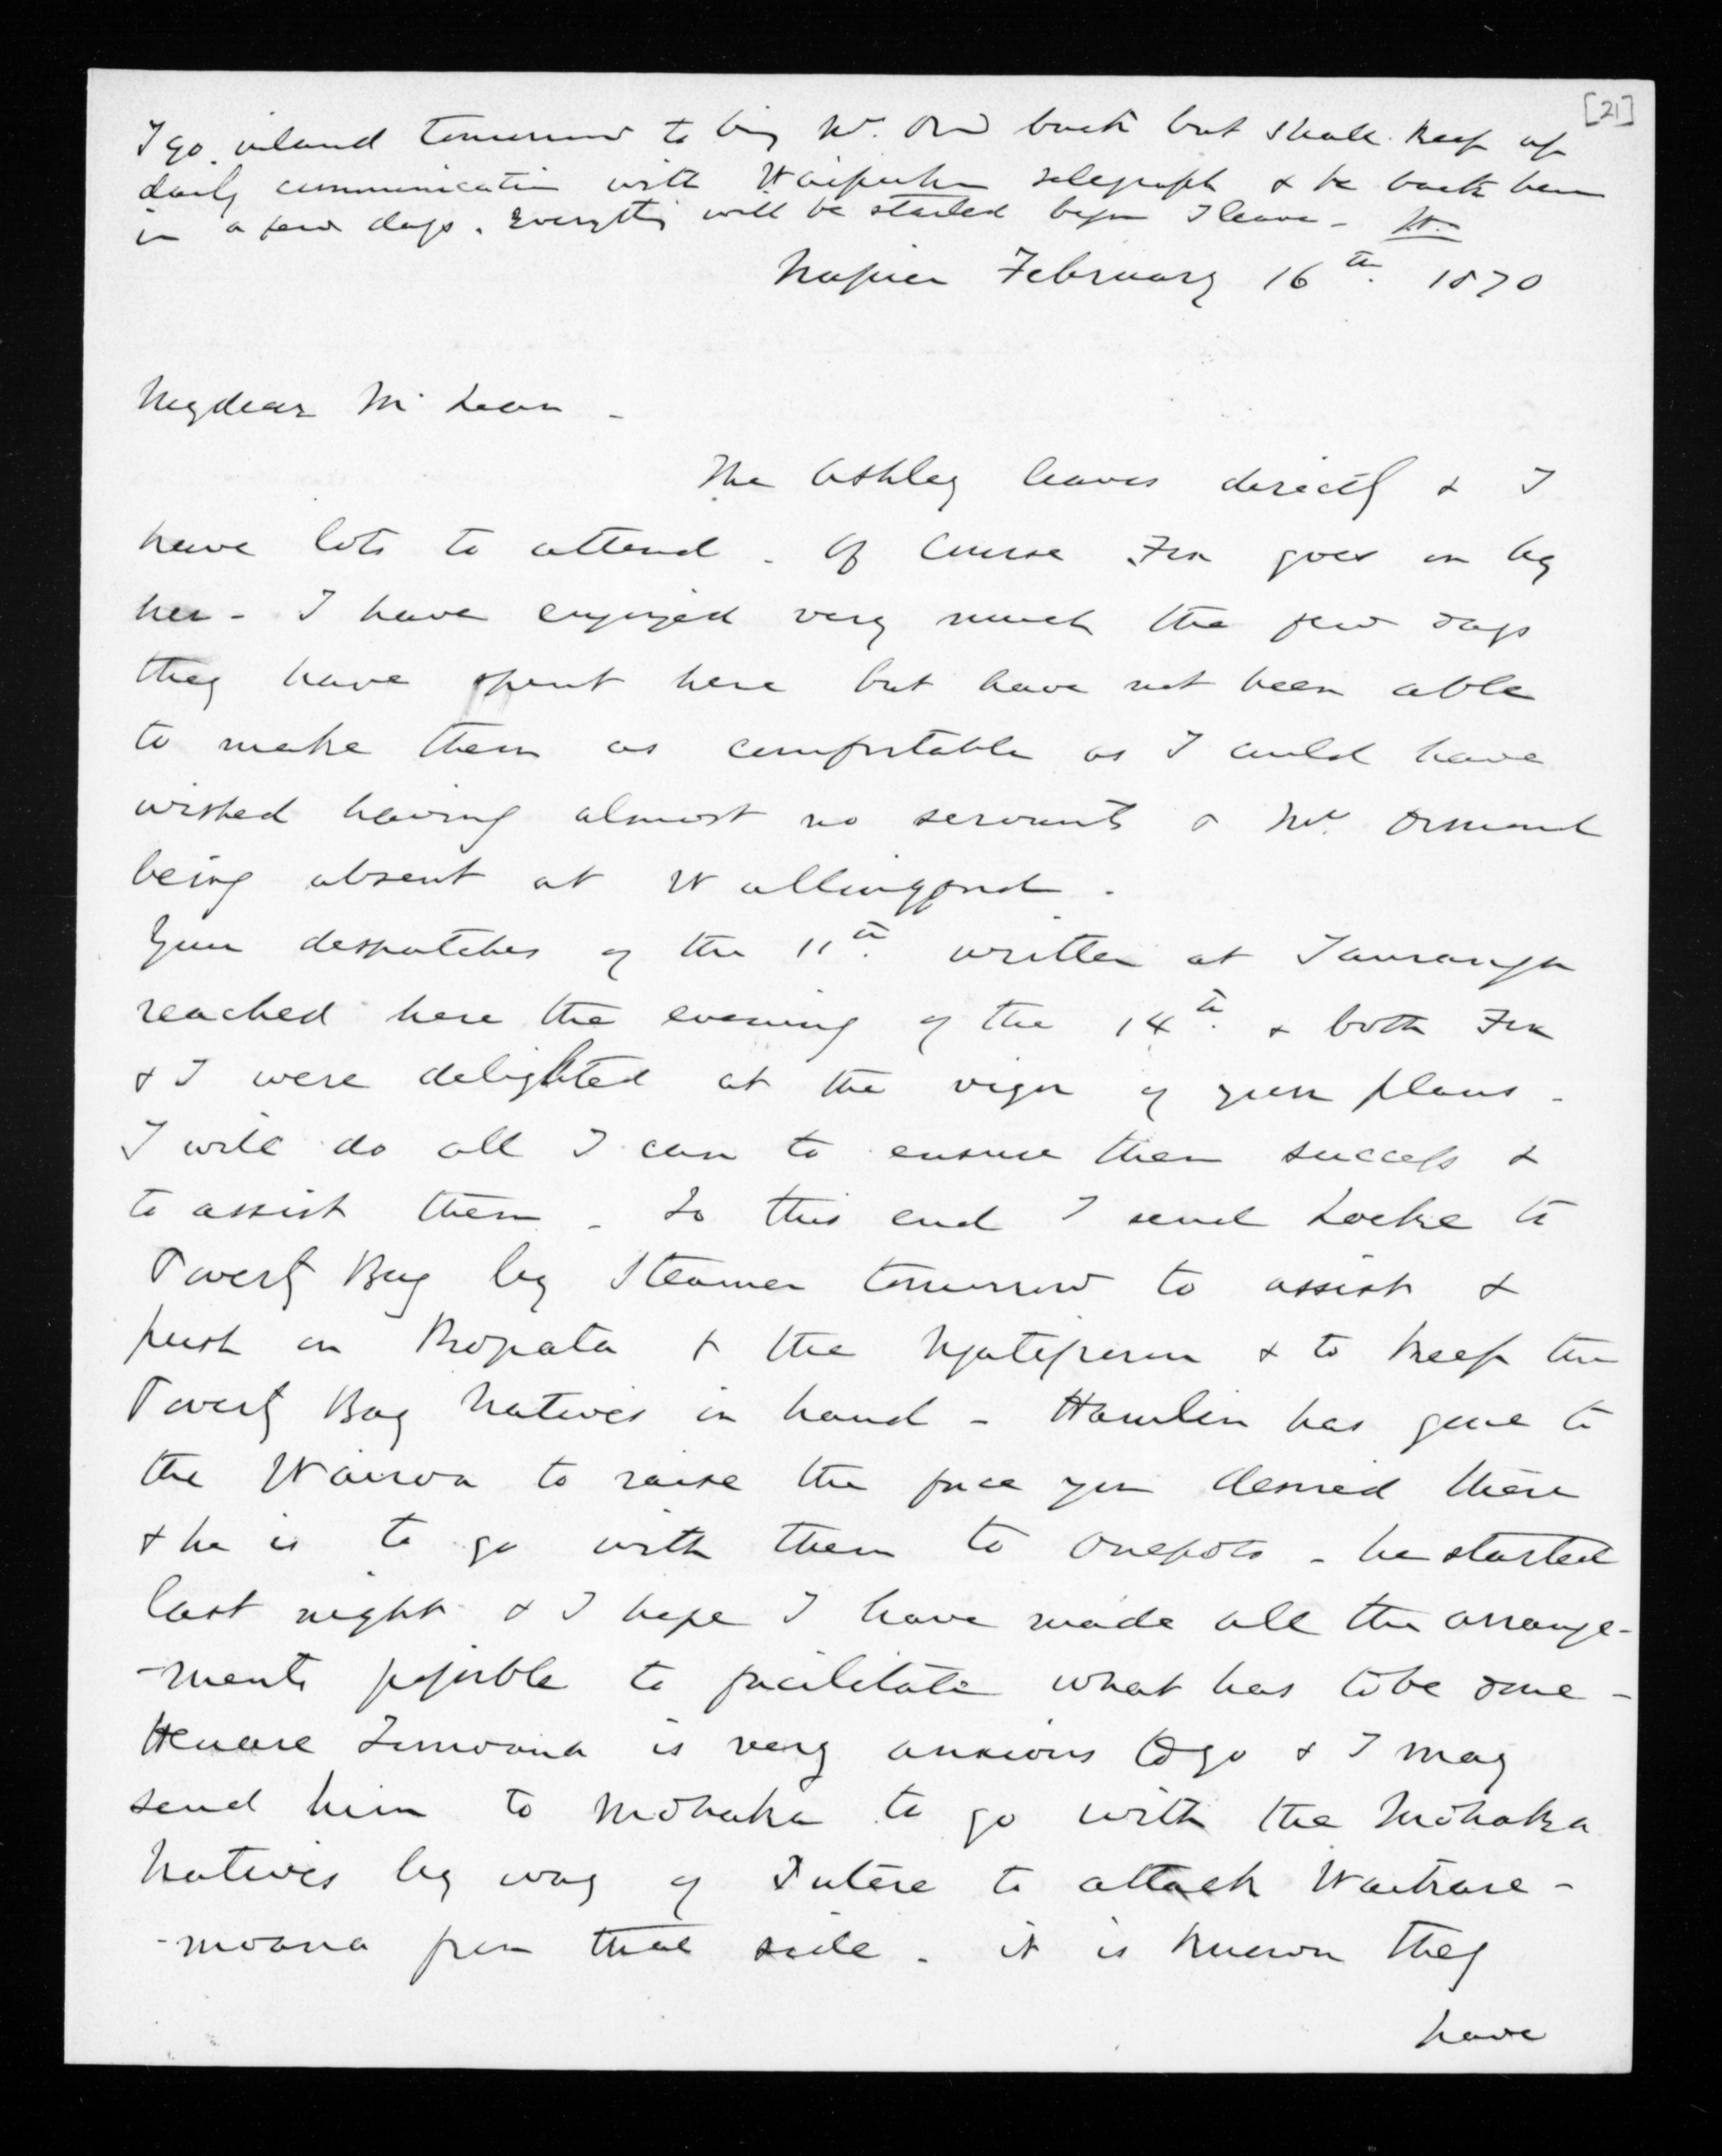 [21]
I go inland tomorrow to bring Mrs. Ord back but shall keep up
daily communication with Waipukurau telegraph & be back here
in a few days. Everything will be started before I leave -
Napier February 16th. 1870
My dear McLean -
The Ashley leaves directly & I
have lots to attend. Of course Fox goes on by
her - I have enjoyed very much the few days
they have spent here but have not been able
to make them as comfortable as I could have
wished having almost no servants & Mrs. Ormond
being absent at Wallingford.
Your despatches of the 11th. written at Tauranga
reached here the evening of the 14th. & both Fox
& I were delighted at the vigor of your plans -
I will do all I can to ensure their success &
to assist them - To this end I send Locke to
Poverty Bay by Steamer tomorrow to assist &
push on Ropata & the Ngatiporou & to keep the
Poverty Bay Natives in hand - Hamlin has gone to
the Wairoa to raise the force you desired there
& he is to go with them to Onepoto - he started
last night & I hope I have made all the arrange-
-ments possible to facilitate what has to be done -
Henare Tomoana is very anxious to go & I may
send him to Mohaka to go with the Mohaka
Natives by way of Putere to attack Waikare-
-moana from that side - it is known they
have